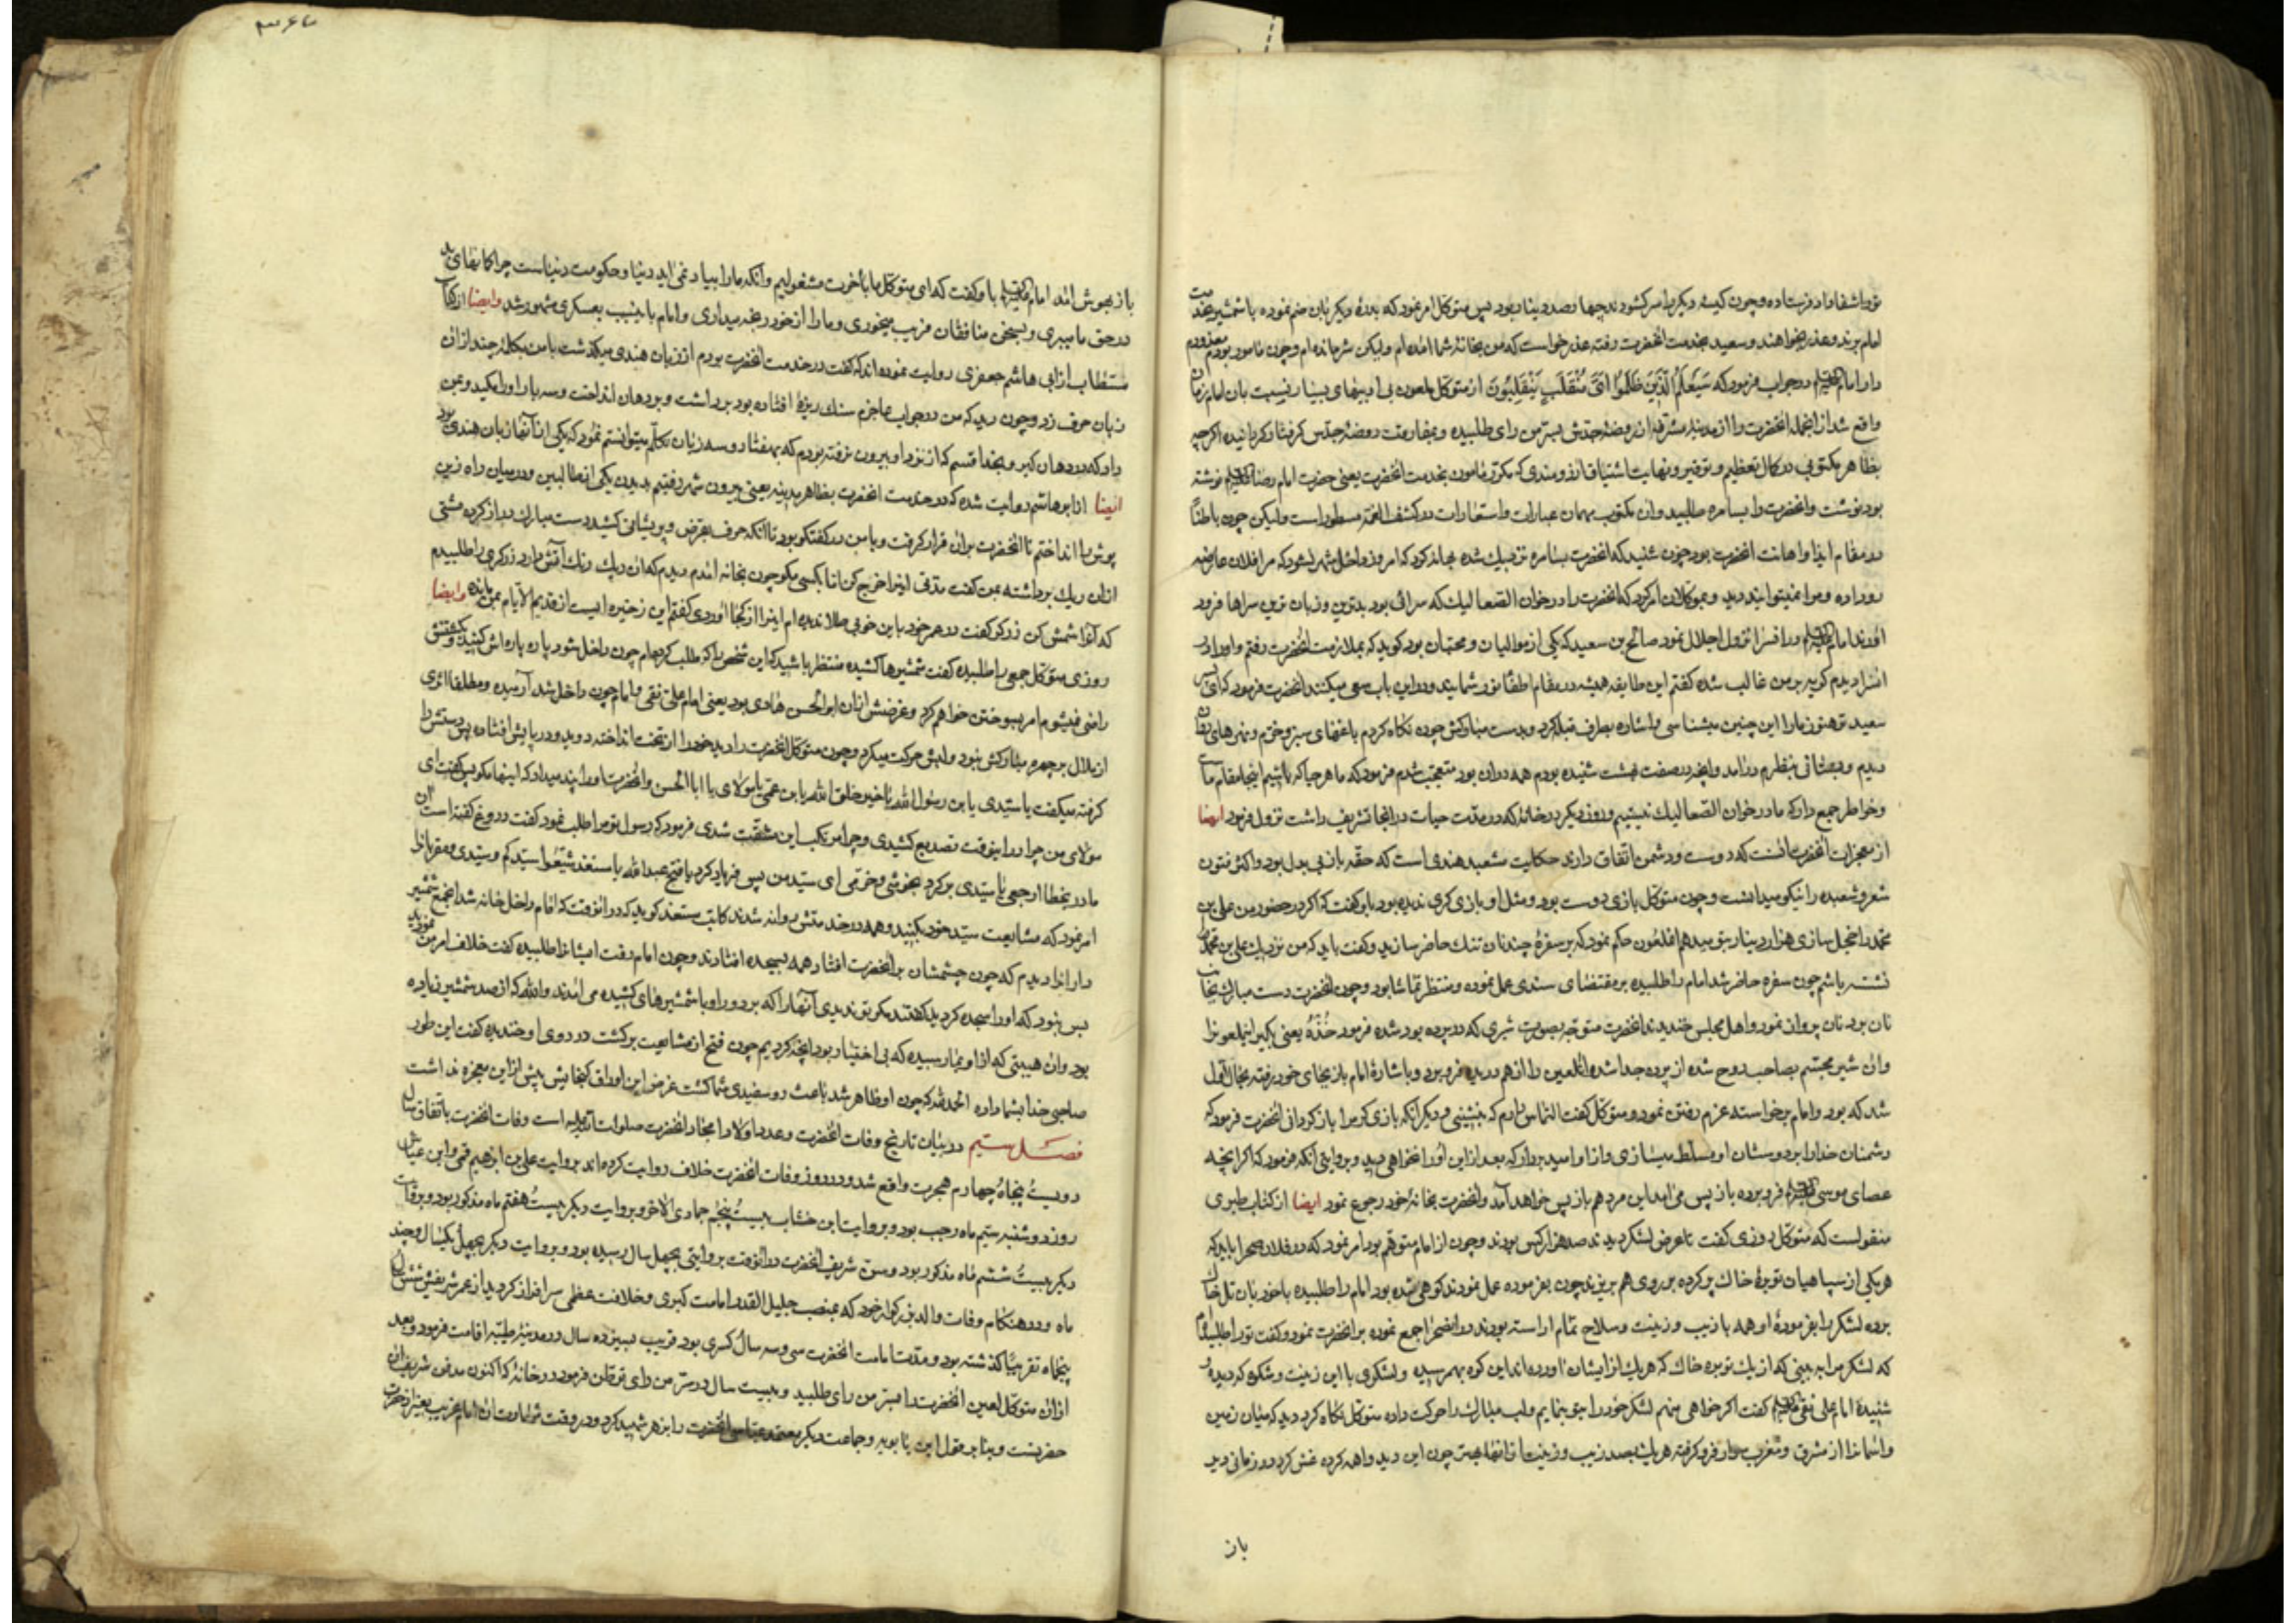 نوراشفا واد فرستاده و چون کیسهٔ دیگر را سر کشودند چهارصد دینار بود پس متوکل امر نمود که بدرهٔ دیگر بان ضم نموده با شمشیر بخدمت
امام برند و عذر بخواهند و سعید بخدمت انحضرت رفته عذر خواست که من بخانهٔ شما امده ام ولیکن شرمنده ام و چون مامور بودم معذورم
دار امام در جواب فرمود که سَیَعْلَمُ الَّذِینَ ظَلَمُوا اَیَّ مُنْقَلَبٍ یَنْقَلِبُونَ از متوکل ملعون بی ادبیهای بسیار نسبت بان امام زمان
واقع شد از انجمله انحضرت را از مدینهٔ مشرفه از روضهٔ جدش بسر من رای طلبیده و بمفارقت روضهٔ جدش کرفتار کردانیده اکرچه
بظاهر مکتوبی در کمال تعظیم و توقیر و نهایت اشتیاق و ارزومندی که مکرر مامون بخدمت انحضرت یعنی حضرت امام رضا نوشته
بود نوشت و انحضرت را بسامره طلبید و ان مکتوب بهمان عبارات و استعارات در کشف الغمه مسطور است ولیکن چون باطناً
در مقام ایذا و اهانت انحضرت بود چون شنید که انحضرت بسامره نزدیک شده بهانه کرد که امروز داخل شهر نشود که مرا فلان عارضه
رو داده و مرا نمیتوانند دید و بموکلان امر کرد که انحضرت را در خان الصعالیک که سرائی بود بدترین و زبان ترین سراها فرود
اوردند امام در انسرا نزول اجلال نمود صالح بن سعید که یکی از موالیان و محبان بود کوید که بملازمت انحضرت رفتم و او را در
انسرا دیدم کریه بر من غالب شده کفتم این طایفه همیشه در مقام اطفاء نور شمایند و در این باب سعی میکنند انحضرت فرمود که ای پسر
سعید تو هنوز ما را این چنین میشناسی و اشاره بطرف قبله کرد و بدست مبارکش چون نکاه کردم باغهای سبز و خرم و نهرهای روان
دیدم و بستانی بنظرم درامد و انچه در صفت بهشت شنیده بودم همه در ان بود متعجب شدم فرمود که ما هر جا که باشیم اینجا مقام ماست
و خاطر جمع دار که ما در خوان الصعالیک نیستیم و روز دیکر در خانهٔ که در مدت حیات در انجا تشریف داشت نزول فرمود ایضا
از معجزات انحضرت انست که دوست و دشمن اتفاق دارند حکایت مشعبد هندی است که حقه باز بی بدل بود و اکثر فنون
شعر و شعبده را نیکو میدانست و چون متوکل بازی دوست بود و مثل او بازی کری ندیده بود باو کفت که اکر در حضور من علی بن
محمد را خجل سازی هزار دینار بتو میدهم انملعون حکم نمود که بر سفرهٔ چند نان تنک حاضر سازید و کفت باید که من نزدیک علی بن محمد
نشسته باشم چون سفره حاضر شد امام را طلبیده بر مقتضای سندی عمل نموده و منتظر تماشا بود و چون انحضرت دست مبارک بجانب
نان برد نان پروان نمود و اهل مجلس خندیدند انحضرت متوجه بصورت شیری که در پرده بود شده فرمود خُذْهُ یعنی بکیر اینملعونرا
وان شیر مجسّم بصاحب روح شده از پرده جدا شده انلعین را از هم دریده فرو برد و باشارهٔ امام باز بجای خود رفته بحال اول
شد که بود و امام برخواسته عزم رفتن نمود و متوکل کفت التماس دارم که بنشینی و دیکر انکه بازی کر مرا باز کردانی انحضرت فرمود که
دشمنان خدا را بر دوستان او مسلط میسازی و از او امید بردار که بعد از این او را نخواهی دید و بروایتی انکه فرمود که اکر انچه
عصای موسی فرو برده باز پس می اید این مرد هم باز پس خواهد امد و انحضرت بخانهٔ خود رجوع نمود ایضا از کتاب طبری
منقولست که متوکل روزی کفت تا عرض لشکر دیدند صد هزار کس بودند و چون از امام متوهم بود امر نمود که در فلان صحرا باید که
هر یکی از سپاهیان توبرهٔ خاک پر کرده بر روی هم بریزند چون بفرموده عمل نمودند کوهی شده بود امام را طلبیده با خود بان تل خاک
برده لشکر را بفرمودهٔ او همه با زیب و زینت و سلاح تمام اراسته بودند در انصحرا جمع نموده بر انحضرت نمود و کفت تو را طلبیده‌ام
که لشکر مرا ببینی که از یک توبره خاک که هر یک از ایشان اورده اند این کوه بهم رسیده و لشکری با این زینت و شکوه که دیده و
شنیده امام علی نقی کفت اکر خواهی منهم لشکر خود را بتو بنمایم و لب مبارک را حرکت داده متوکل نکاه کرد دید که میان زمین
واسمان از مشرق و مغرب سوار فرو کرفته هر یک بصد زیب و زینت از انها بهتر چون این دید واهمه کرده غش کرد و در زمانی دیر
باز
باز بهوش امد امام باو کفت که ای متوکل ما باخرت مشغولیم وانکه ما را بیاد نمی اید دنیا و حکومت دنیاست چرا کمانهای بد
در حق ما میبری و بسخن منافقان فریب میخوری و ما را از خود رنجه میداری و امام باینسبب بعسکری مشهور شد وایضا از کتاب
مستطاب از ابی هاشم جعفری روایت نموده اند که کفت در خدمت انحضرت بودم از زبان هندی میکذشت با من بکلمهٔ چند از ان
زبان حرف زد و چون دید که من در جواب عاجزم سنک ریزهٔ افتاده بود برداشت و بر دهان انداخت و سه بار او را مکید و بمن
داد که در دهان کیر و بخدا قسم که از نزد او بیرون نرفته بودم که بهفتاد و سه زبان تکلم میتوانستم نمود که یکی از انها زبان هندی بود
ایضا از ابو هاشم روایت شده که در خدمت انحضرت بظاهر مدینه یعنی بیرون شهر رفتیم بدیدن یکی از طالبین و در میان راه زین
پوش را انداختم تا انحضرت بران قرار کرفت و با من در کفتکو بود تا انکه حرف بقرض و پریشانی کشید دست مبارک دراز کرده مشتی
ازان ریک برداشته بمن کفت مدتی اینرا خرج کن اما بکسی مکو چون بخانه امدم دیدم که ان ریک رنک اتش دارد زرکری را طلبیدم
که انرا شمش کن زرکر کفت در عمر خود باین خوبی طلا ندیده ام اینرا از کجا اوردی کفتم این ذخیره ایست از قدیم الایام بمن مانده وایضا
روزی متوکل جمعی را طلبیده کفت شمشیرها کشیده منتظر باشید که این شخص را که طلب کرده‌ام چون داخل شود پاره پاره اش کنید و بکشتنش
راضی نمیشوم امر بسوختن خواهم کرد و غرضش ازان ابوالحسن هادی بود یعنی امام علی نقی و امام چون داخل شد ارمیده و مطلقا اثری
از ملال بر چهره مبارکش نبود و لبش حرکت میکرد و چون متوکل انحضرت را دید خود را از تخت انداخته دوید و در پایش افتاده پس دستش را
کرفته میکفت یا سیدی یا بن رسول الله یا خیر خلق الله یا بن عمی یا مولای یا ابا الحسن و انحضرت او را پند میداد که اینها مکو پس کفت ای
مولای من چرا در اینوقت تصدیع کشیدی و چرا مرتکب این مشقت شدی فرمود که رسول تو مرا طلب نمود کفت دروغ کفته است ان
مادر بخطا ارجعی یا سیدی برکرد بخوشی و خرمی ای سید من پس فریاد کرد یا فتح عبدالله یا مستغد شیعوا سیدکم و سیدی و مقربان را
امر نمود که مشایعت سید خود بکنید و همه در خدمتش روانه شدند کاتب مستغد کوید که در انوقت که امام داخل خانه شد انجمع شمشیر
داران را دیدم که چون چشمشان بر انحضرت افتاد همه بسجده افتادند و چون امام رفت ایشانرا طلبیده کفت خلاف امر من نمودید
بس نبود که او را سجده کردید کفتند مکر تو ندیدی انها را که بر دور او با شمشیرهای کشیده می امدند والله که از صد شمشیر زیاده
بود وان هیبتی که از او بما رسیده که بی اختیار بود انچه کردیم چون فتح از مشایعت برکشت در روی او خندیده کفت این طور
صاحبی خدا بشما داده الحمد لله که چون او ظاهر شد باعث روسفیدی شما کشت غرض این اوراق کنجایش بیش از این معجزه نداشت
فصل سیم در بیان تاریخ وفات انحضرت و عدد اولاد امجاد انحضرت صلوات الله علیه است وفات انحضرت باتفاق سال
دویست پنجاه چهارم هجرت واقع شد و در روز وفات انحضرت خلاف روایت کرده اند بروایت علی بن ابرهیم قمی و ابن عیاش
روز دوشنبه سیم ماه رجب بود و بروایت ابن خشاب بیست پنجم جمادی الاخر و بروایت دیکر بیست هفتم ماه مذکور بود و بروایت
دیکر بیست ششم ماه مذکور بود و سن شریف انحضرت در انوقت بروایتی بچهل سال رسیده بود و بروایت دیکر بچهل یکسال و چند
ماه و در هنکام وفات والد بزرکوار خود که بمنصب جلیل القدر امامت کبری و خلافت عظمی سرافراز کردید از عمر شریفش شش سال
پنجماه تقریباً کذشته بود و مدت امامت انحضرت سی و سه سال کسری بود قریب بسیزده سال در مدینهٔ طیبه اقامت فرمود و بعد
ازان متوکل لعین انحضرت را بسر من رای طلبید و بیست سال در سر من رای توطن فرمود در خانهٔ که اکنون مدفن شریف ان
حضرتست و بنا بر قول ابن بابویه و جماعت دیکر معتمد عباسی انحضرت را بزهر شهید کرد و در وقت شهادت ان امام غریب بغیر از حضرت